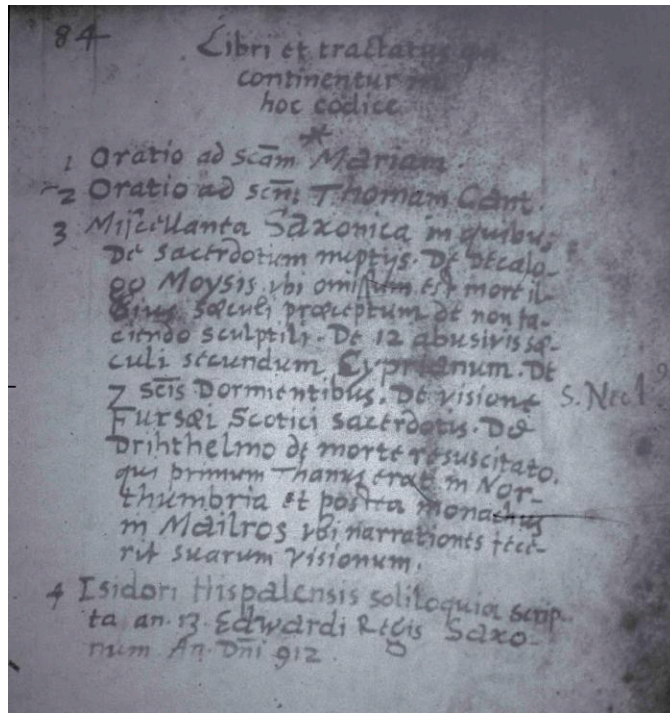 84
Libri et tractatus qui
continentur in
hoc codice
1 Oratio ad scām Mariam.
2 Oratio ad scm̄ Thomam Cant.
3 Miscellanea Saxonica in quibus
De sacerdotium nuptijs. De decalo-
go Moysis vbi omissum est more il-
lius sæculi præceptum de non fa-
ciendo sculptili. De 12 abusivis sæ-
culi secundum Cyprianum. De
7 scīs Dormientibus. De visione
Fursæi Scotici sacerdotis. De
Drihthelmo de morte resuscitato.
qui primum Thanus erat in Nor-
thumbria et postea monachus
in Mailros vbi narrationes fece-
rit suarum visionum.
4 Isidori Hispalensis soliloquia scrip-
ta an. 13. Edwardi Regis Saxo-
num An. Dn̄i 912